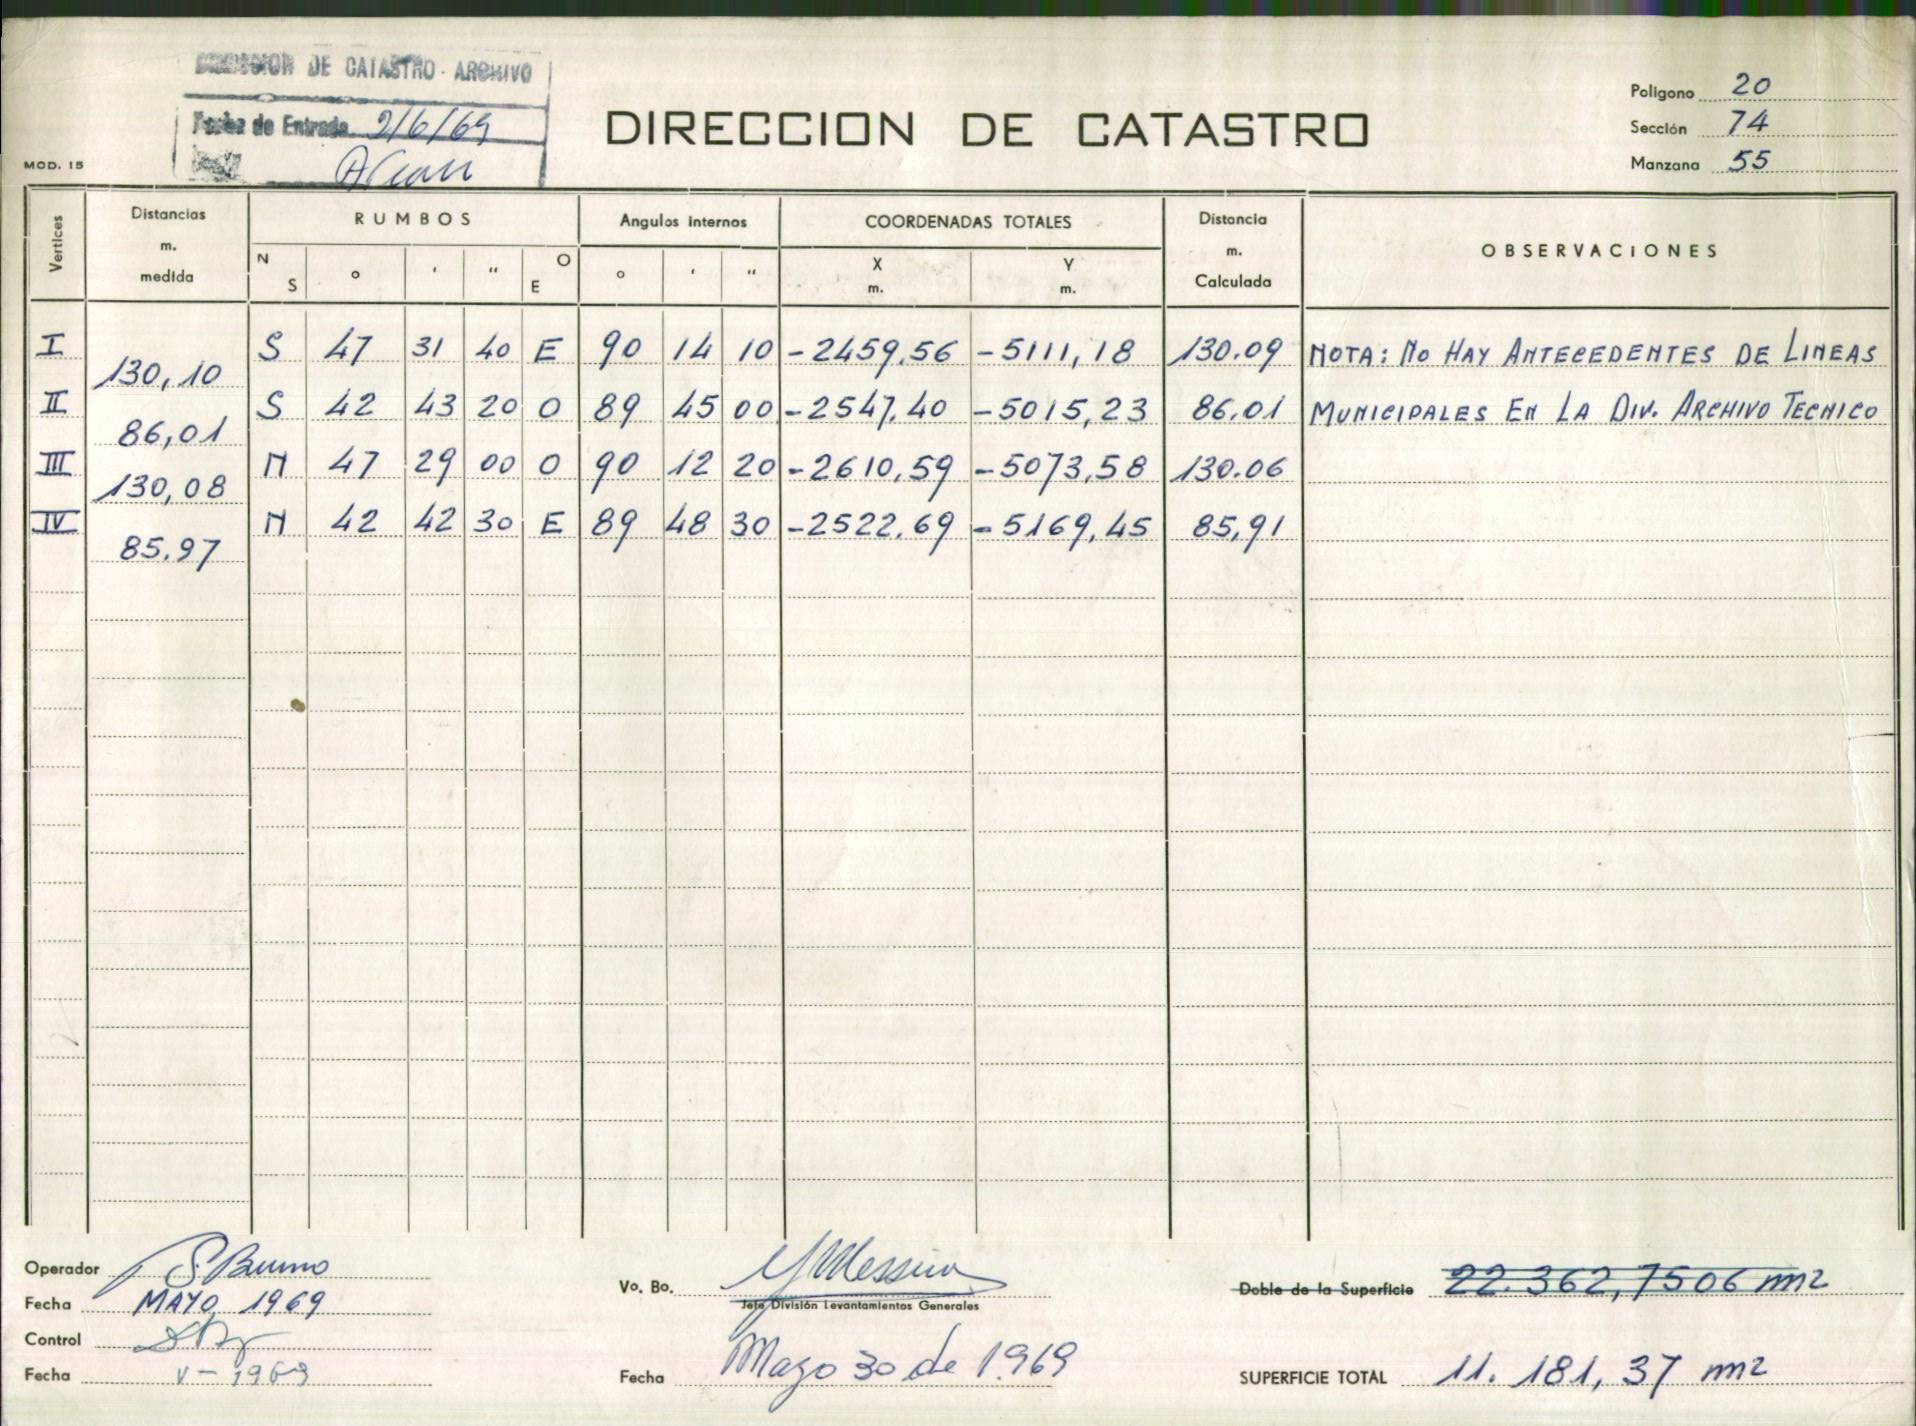 DIRECCION DE CATASTRO - ARCHIVO
Fecha de Entrada 2/6/69
DIRECCION DE CATASTRO
Poligono 20
Sección 74
Manzana 55
MOD. 15
Vertices Distancias m. medida RUMBOS Angulos internos COORDENADAS TOTALES Distancia m. Calculada OBSERVACIONES
N S ° ' " O E ° ' " X m. Y m.
I S 47 31 40 E 90 14 10 -2459.56 -5111,18 130.09 NOTA: NO HAY ANTECEDENTES DE LINEAS
130,10
II S 42 43 20 O 89 45 00 -2547,40 -5015,23 86.01 MUNICIPALES EN LA DIV. ARCHIVO TECNICO
86,01
III N 47 29 00 O 90 12 20 -2610,59 -5073,58 130.06
130,08
IV N 42 42 30 E 89 48 30 -2522,69 -5169,45 85,91
85.97
Operador S. Bruno
Fecha MAYO 1969
Control
Fecha V-1969
Vo. Bo. Messina
Jefe División Levantamientos Generales
Fecha Mayo 30 de 1.969
Doble de la Superficie 22.362,7506 m2
SUPERFICIE TOTAL 11.181,37 m2